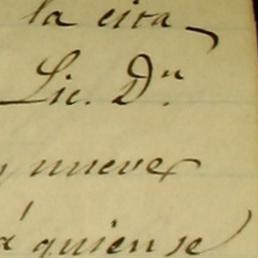 la cita
Lic. Dn
y nueve
á quien se